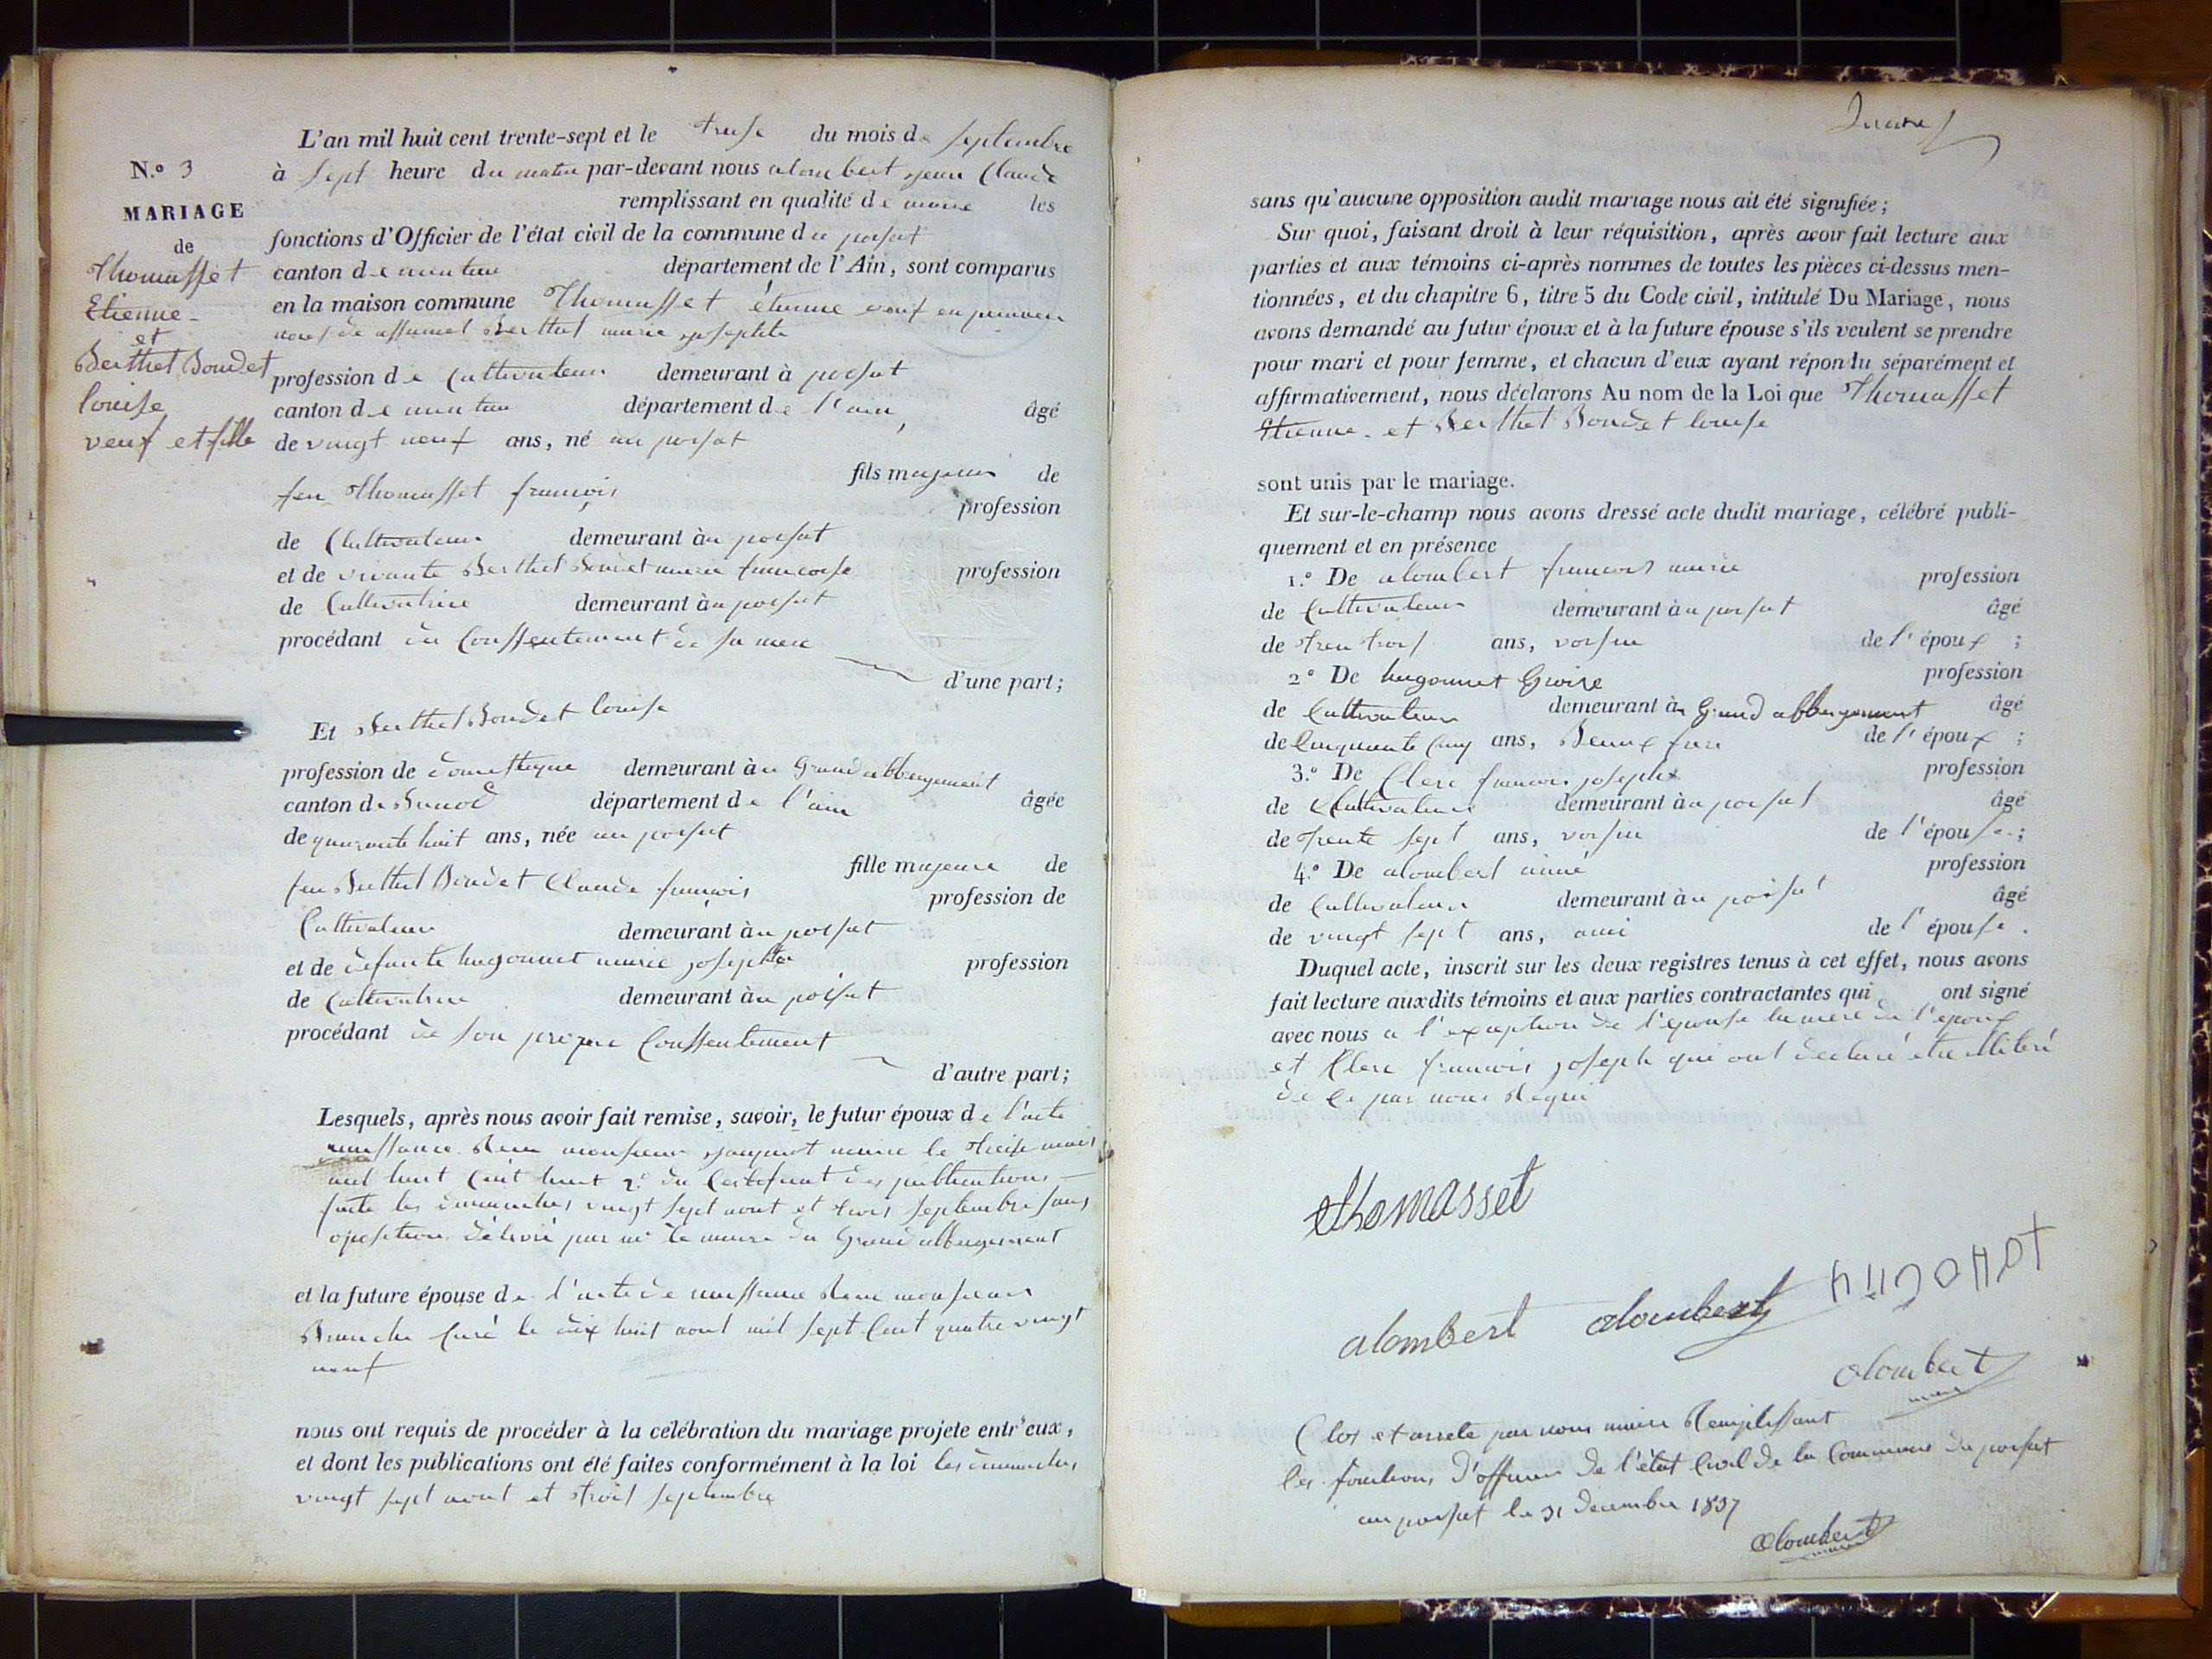 N.º 3
MARIAGE
de
Thomasset
Etienne
et
Berthet Boudet
louise
veuf et fille
L'an mil huit cent trente-sept et le treise du mois de septembre
à sept heure du matin par-devant nous alombert jean Claude
remplissant en qualité de maire les
fonctions d'Officier de l'état civil de la commune du poisat
canton de nantua département de l'Ain, sont comparus
en la maison commune Thomasset étienne veuf en premier
Berthet marie josephte
profession de Cultivateur demeurant à poisat
canton de nantua département de l'ain âgé
de vingt neuf ans, né au poisat
fils majeur de
feu Thomasset françois
profession
de Cultivateur demeurant au poisat
et de vivante Berthet Boudet marie francoise profession
de Cultivatrice demeurant au poisat
procédant du Conssentement de sa mere
d'une part;
Et Berthet Boudet louise
profession de domestique demeurant au Grand abbergement
canton de Brenod département de l'ain âgée
de quarante huit ans, née au poisat
fille majeure de
feu Berthet Boudet Claude françois
profession de
Cultivateur demeurant au poisat
et de defunte hugonnet marie josephte profession
de Cultivatrice demeurant au poisat
procédant de son propre Conssentement
d'autre part;
Lesquels, après nous avoir fait remise, savoir, le futur époux de l'acte
naissance Reçu monsieur maire le treise mars
mil huit Cent huit 2º du Certificat des publications
faite les dimanches vingt sept aout et trois septembre sans
oposition délivré par mr le maire du Grand abbergement
et la future épouse de l'acte de naissance Reçu monsieur
Curé le dix huit aout mil sept Cent quatre vingt
neuf
nous ont requis de procéder à la célébration du mariage projeté entr'eux,
et dont les publications ont été faites conformément à la loi les dimanches
vingt sept aout et troi septembre
sans qu'aucune opposition audit mariage nous ait été signifiée;
Sur quoi, faisant droit à leur réquisition, après avoir fait lecture aux
parties et aux témoins ci-après nommés de toutes les pièces ci-dessus men-
tionnées, et du chapitre 6, titre 5 du Code civil, intitulé Du Mariage, nous
avons demandé au futur époux et à la future épouse s'ils veulent se prendre
pour mari et pour femme, et chacun d'eux ayant répondu séparément et
affirmativement, nous déclarons Au nom de la Loi que Thomasset
Etienne et Berthet Boudet louise
sont unis par le mariage.
Et sur-le-champ nous avons dressé acte dudit mariage, célébré publi-
quement et en présence
1.º De alombert francois marie profession
de Cultivateur demeurant au poisat âgé
de tren trois ans, voisin de l'époux ;
2º De hugonnet profession
de Cultivateur demeurant au Grand abbergement âgé
de Cinquante Cinq ans, Beaux frere de l'époux ;
3.º De Clerc francois joseph profession
de Cultivateur demeurant au poisat âgé
de trente sept ans, voisin de l'épouse ;
4.º De alombert aimé profession
de Cultivateur demeurant au poisat âgé
de vingt sept ans, ami de l'épouse .
Duquel acte, inscrit sur les deux registres tenus à cet effet, nous avons
fait lecture auxdits témoins et aux parties contractantes qui ont signé
avec nous a l'exception de l'épouse la mere de l'époux
et Clerc francois joseph qui ont declaré etre illitéré
de Ce par nous Requi
thomasset
alombert alombert HUGONOT
alombert
maire
Clos et arrete par nous maire Remplissant
les fonctions d'officier de l'état Civil de la Commune du poisat
au poisat le 31 decembre 1837
alombert
maire